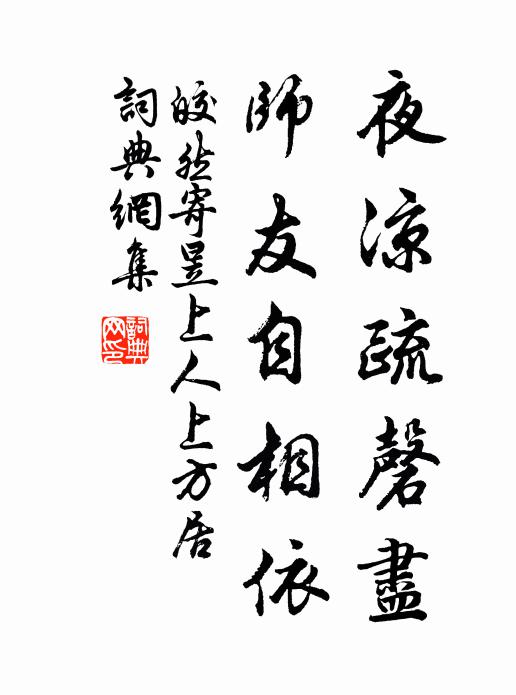 夜涼疏磬盡
師友自相依
皎然寄昱上人上方居
詞典網集
詞典網印